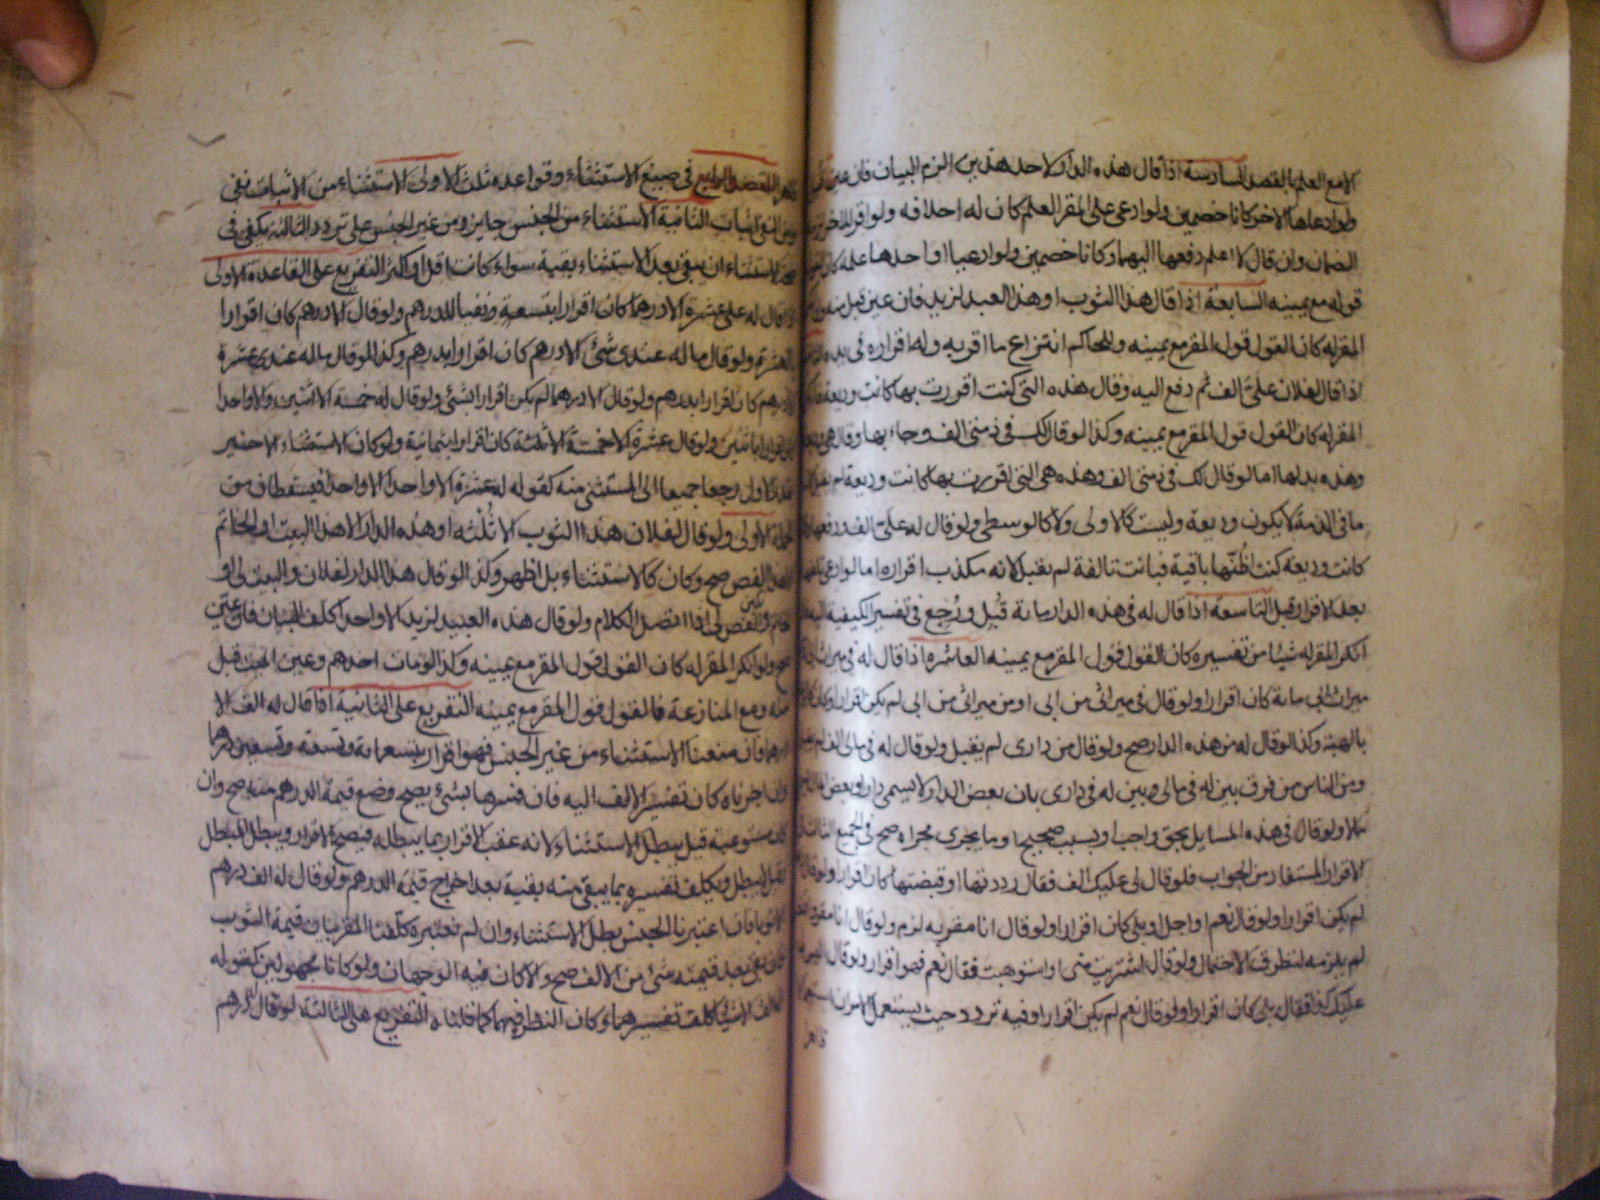 الا مع العلم بالقصد السادسة اذا قال هذه الدار لاحد هذين الزم البيان فان عين
ولو ادعاها الاخر كانا خصمين ولو ادعى على المقر العلم كان له احلافه ولو اقر للاخر
الضمان وان قال لا اعلم دفعها اليهما وكانا خصمين ولو ادعيا او احدهما علمه كان
قوله مع يمينه السابعة اذا قال هذا الثوب او هذا العبد لزيد فان عين قبل منه
المقر له كان القول قول المقر مع يمينه وللحاكم انتزاع ما اقر به وله اقراره في يده
اذا قال لفلان علي الف ثم دفع اليه وقال هذه التي كنت اقررت بها كانت وديعة
المقر له كان القول قول المقر مع يمينه وكذا لو قال لك في ذمتي الف وجاء بها وقال هي
وهذه بدلها اما لو قال لك في ذمتي الف وهذه هي التي اقررت بها كانت وديعة لم
ما في الذمة لا يكون وديعة وليست كالاولى ولا كالوسطى ولو قال له علي الف ودفعها
كانت وديعة كنت اظنها باقية فبانت تالفة لم يقبل لانه مكذب اقراره اما لو ادعى
بعد الاقرار قبل التاسعة اذا قال له في هذه الدار مائة قبل ورجع في تفسير الكيفية اليه
انكر المقر له شيئا من تفسيره كان القول قول المقر مع يمينه العاشرة اذا قال له في ميراث
ميراث ابي مائة كان اقرارا ولو قال في ميراثي من ابي او من ميراثي من ابي لم يكن اقرارا وكان
بالهبة وكذا لو قال له من هذه الدار صح ولو قال من داري لم يقبل ولو قال له في مالي الف لم
ومن الناس من فرق بين له في مالي وبين له في داري بان بعض الدار لا يسمى دارا وبعض
مالا ولو قال في هذه المسايل بحق واجب او بسبب صحيح وما يجري مجراه صح في الجميع
الاقرار المستفاد من الجواب فلو قال لي عليك الف فقال رددتها او قبضتها كان اقرارا ولو قال
لم يكن اقرارا ولو قال نعم او اجل او بلى كان اقرارا ولو قال انا مقر به لزم ولو قال انا مقر
لم يلزمه لتطرق الاحتمال ولو قال اشتريت مني او استوهبت فقال نعم فهو اقرار ولو قال
عليك كذا فقال بلى كان اقرارا ولو قال نعم لم يكن اقرارا وفيه تردد حيث يستعمل الامران
ظاهر
المقصد الرابع في صيغ الاستثناء وقواعده ثلث الاولى الاستثناء من الاثبات نفي
ومن النفي اثبات الثانية الاستثناء من الجنس جايز ومن غير الجنس على تردد الثالثة يكفي في
الاستثناء ان يبقى بعد الاستثناء بقية سواء كانت اقل او اكثر التفريع على القاعدة الاولى
اذا قال له علي عشرة الا درهما كان اقرارا بتسعة ونفيا للدرهم ولو قال الا درهم كان اقرارا
بالعشرة ولو قال ما له عندي شئ الا درهم كان اقرارا بدرهم وكذا لو قال ما له عندي عشرة
الا درهم كان اقرارا بدرهم ولو قال الا درهما لم يكن اقرارا بشئ ولو قال له خمسة الا اثنين والا واحدا
كان اقرارا باثنين ولو قال عشرة الا خمسة الا ثلثة كان اقرارا بثمانية ولو كان الاستثناء الاخير
بقدر الاول رجعا جميعا الى المستثنى منه كقوله له عشرة الا واحدا الا واحدا فيسقطان من
الجملة الاولى ولو قال لفلان هذا الثوب الا ثلثه او هذه الدار الا هذا البيت او الخاتم
الا هذا الفص صح وكان كالاستثناء بل اظهر وكذا لو قال هذه الدار لفلان والبيت لي او
الخاتم والفص لي اذا اتصل الكلام ولو قال هذه العبيد لزيد الا واحدا كلف البيان فان عين
صح ولو انكر المقر له كان القول قول المقر مع يمينه وكذا لو مات احدهم وعين الميت قبل
منه ومع المنازعة فالقول قول المقر مع يمينه التفريع على الثانية اذا قال له الف الا
درهما فان منعنا الاستثناء من غير الجنس فهو اقرار بتسعمائة وتسعة وتسعين درهما
وان اجزناه كان تفسير الالف اليه فان فسرها بشئ يصح وضع قيمة الدرهم منه صح وان
كان مستوعبة قيل يبطل الاستثناء لانه عقب الاقرار بما يبطله فيصح الاقرار ويبطل المبطل
وقيل لا يبطل ويكلف تفسيره بما يبقى منه بقية بعد اخراج قيمة الدرهم ولو قال له الف درهم
الا ثوبا فان اعتبرنا الجنس بطل الاستثناء وان لم نعتبره كلفنا المقر بيان قيمة الثوب
فان بقي بعد قيمته شئ من الالف صح والا كان فيه الوجهان ولو كانا مجهولين كقوله
له الف الا شيئا كلف تفسيرهما وكان النظر فيهما كما قلناه التفريع على الثالثة لو قال له درهم